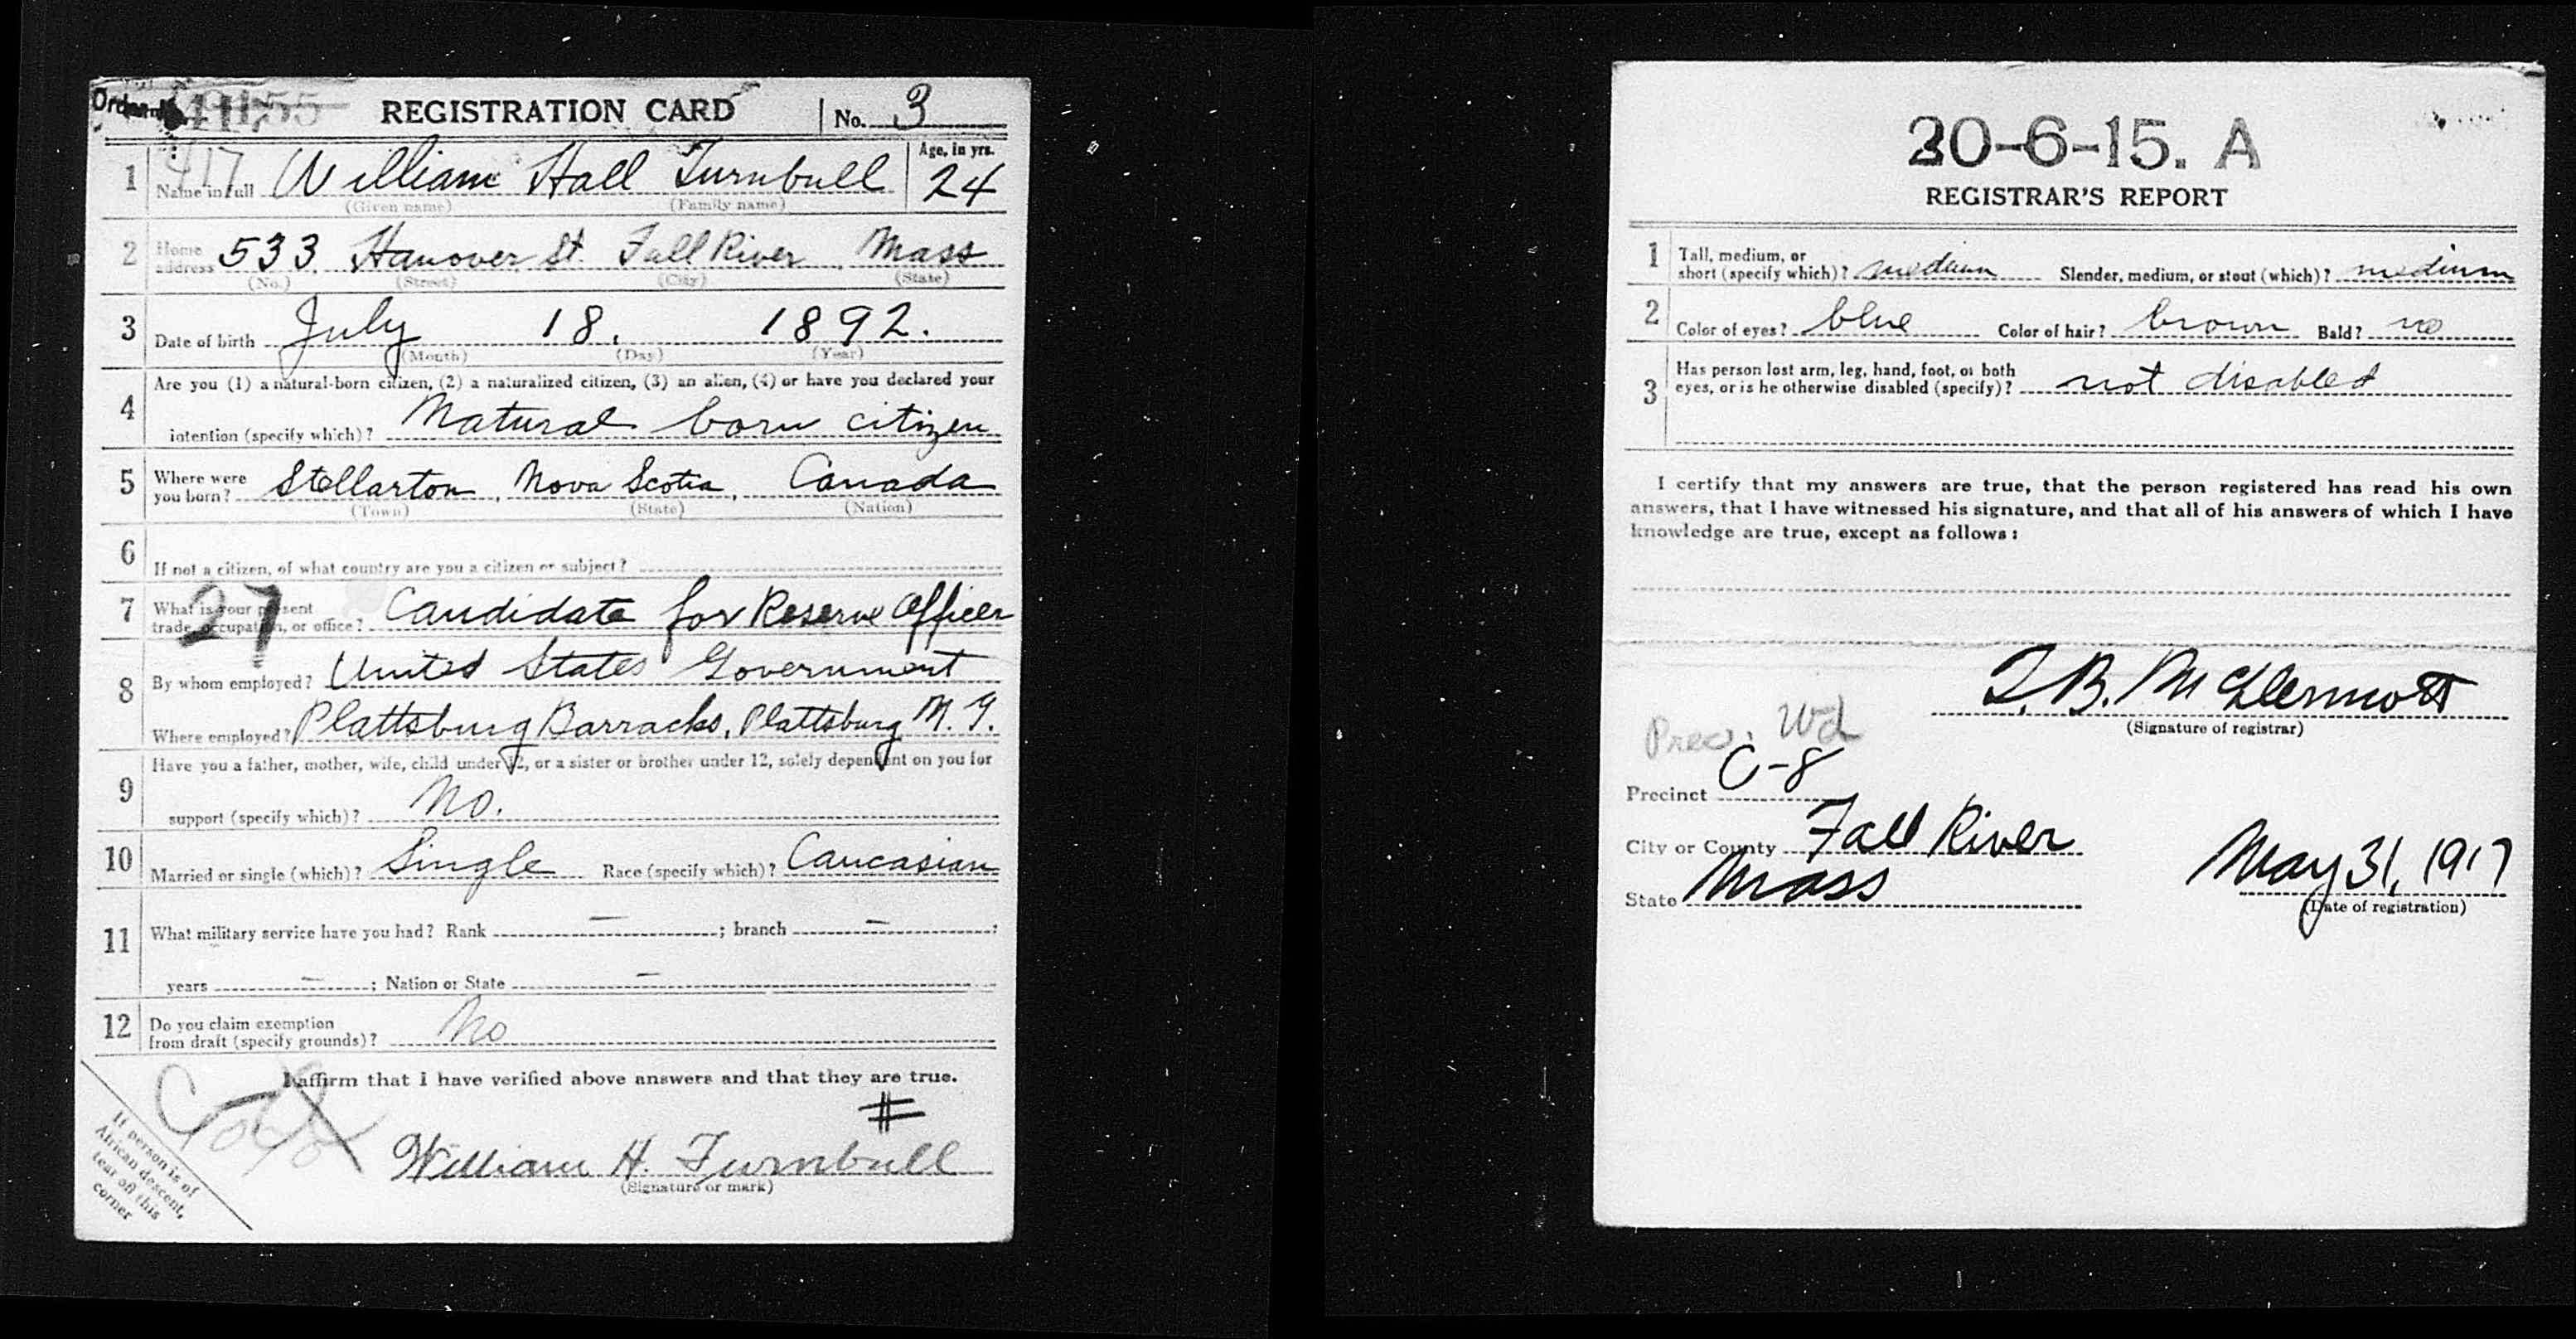 REGISTRATION CARD No. 3
417
1 Name in full William Hall Turnbull Age, in yrs. 24
(Given name) (Family name)
2 Home address 533 Hanover St. Fall River, Mass
(No.) (Street) (City) (State)
3 Date of birth July 18, 1892.
(Month) (Day) (Year)
4 Are you (1) a natural-born citizen, (2) a naturalized citizen, (3) an alien, (4) or have you declared your
intention (specify which)? Natural born citizen
5 Where were you born? Stellarton, Nova Scotia, Canada
(Town) (State) (Nation)
6 If not a citizen, of what country are you a citizen or subject?
27
7 What is your present trade, occupation, or office? Candidate for Reserve Officer
8 By whom employed? United States Government
Where employed? Plattsburg Barracks, Plattsburg N.Y.
9 Have you a father, mother, wife, child under 12, or a sister or brother under 12, solely dependent on you for
support (specify which)? No.
10 Married or single (which)? Single Race (specify which)? Caucasian
11 What military service have you had? Rank — ; branch — ;
years — ; Nation or State —
12 Do you claim exemption from draft (specify grounds)? No
I affirm that I have verified above answers and that they are true.
William H. Turnbull
(Signature or mark)
If person is of
African descent,
tear off this
corner
30-6-15. A
REGISTRAR'S REPORT
1 Tall, medium, or short (specify which)? medium Slender, medium, or stout (which)? medium
2 Color of eyes? blue Color of hair? brown Bald? no
3 Has person lost arm, leg, hand, foot, or both eyes, or is he otherwise disabled (specify)? not disabled
I certify that my answers are true, that the person registered has read his own
answers, that I have witnessed his signature, and that all of his answers of which I have
knowledge are true, except as follows:
T. B. McDermott
(Signature of registrar)
Prec. Wd
Precinct C-8
City or County Fall River
State Mass May 31, 1917
(Date of registration)